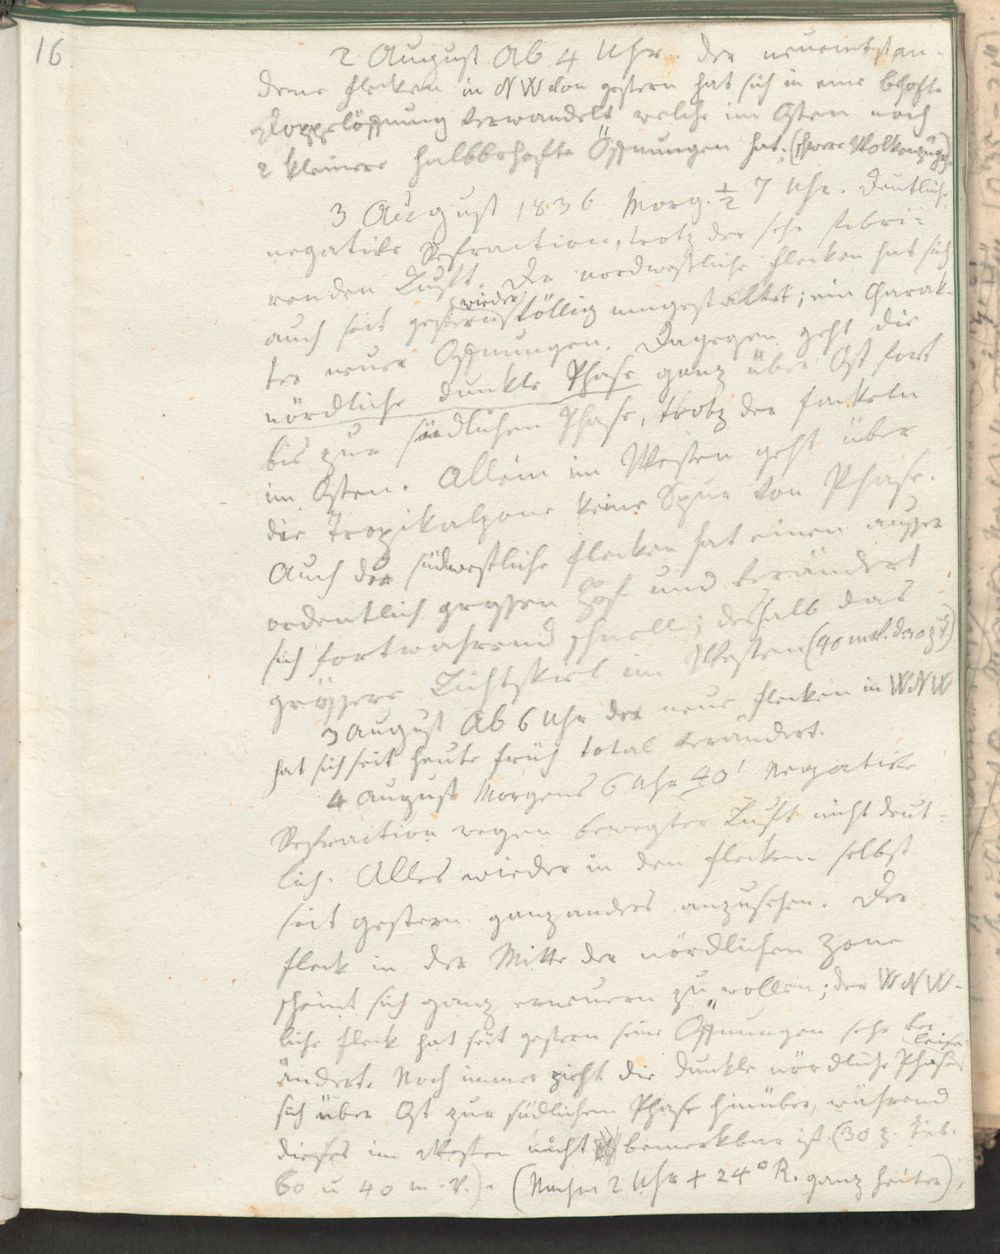 16
2 August Ab 4 Uhr. der neuentstan-
dene Flecken in NW von gestern hat sich in eine behofte
Doppelöffnung verwandelt welche im Osten noch
2 kleinere halbbehofte Öffnungen hat. (schwere Wolkenzüge)
3 August 1836 Morg. ½ 7 Uhr. Deutliche
negative Refraction, trotz der sehr vibri-
renden Luft. Der nordwestliche Flecken hat sich
auch seit gestern wieder völlig umgestaltet; ein Charak-
ter neuer Öffnungen. Dagegen geht die
nördliche dunkle Phase ganz über Ost fort
bis zur südlichen Phase, trotz der Fackeln
im Osten. Allein im Westen geht über
die Tropikalzone keine Spur von Phase.
Auch der südwestliche Flecken hat einen ausser
ordentlich grossen Hof und verändert
sich fortwährend schnell; deshalb das
grössere Lichtthal im Westen (40 m.V.
3 August Ab 6 Uhr der neue Flecken in WNW
hat sich seit heute früh total verändert.
4 August Morgens 6 Uhr 40' Negative
Refraction wegen bewegter Luft nicht deut-
lich. Alles wieder in den Flecken selbst
seit gestern ganz anders anzusehen. Der
Fleck in der Mitte der nördlichen Zone
scheint sich ganz erneuern zu wollen; der WNW-
liche Fleck hat seit gestern seine Öffnungen sehr ver
ändert. Noch immer zieht die dunkle nördliche Phase
sich über Ost zur südlichen Phase hinüber, während
dieses im Westen nicht bemerkbar ist. (30 z.
60 u 40 m.V.). (Nachm 2 Uhr + 24° R. ganz heiter).